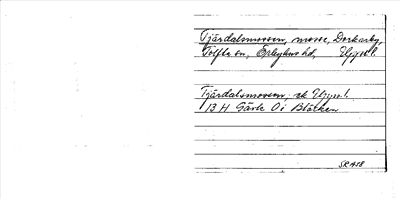 Tjärdalsmossen, mosse, Dorkarby,
Tolfta sn, Örbyhus hd, Uppsl.
Tjärdalsmossen, ek Uppsl.
13 H Gävle 0 i Blåtken
SR 1458